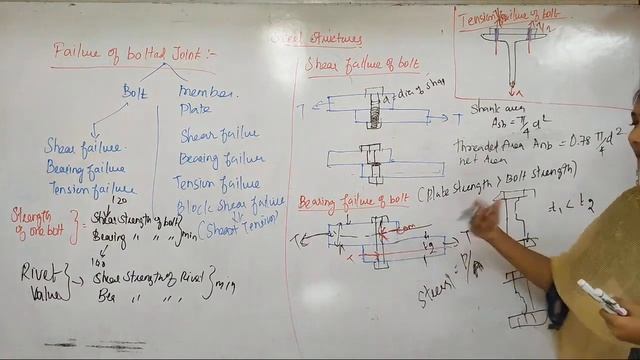 Steel Structures
Failure of bolted Joint :-
Bolt
member
Plate
Shear failure
Bearing failure
Tension failure
Shear failure
Bearing failure
Tension failure
Block Shear failure
(Shear + Tension)
Strength of one bolt
120
Shear strength of bolt
Bearing " " "
min
100
Rivet Value
Shear strength of Rivet
Bea " " "
min
Shear failure of bolt
d = dia. of shan
T
T
Shank area
Asb = π/4 d²
Threaded Area Anb = 0.78 π/4 d²
net Area
Bearing failure of bolt (Plate strength > Bolt strength)
T
T
t2
t1 < t2
Stress = P/A
Tension failure of bolt